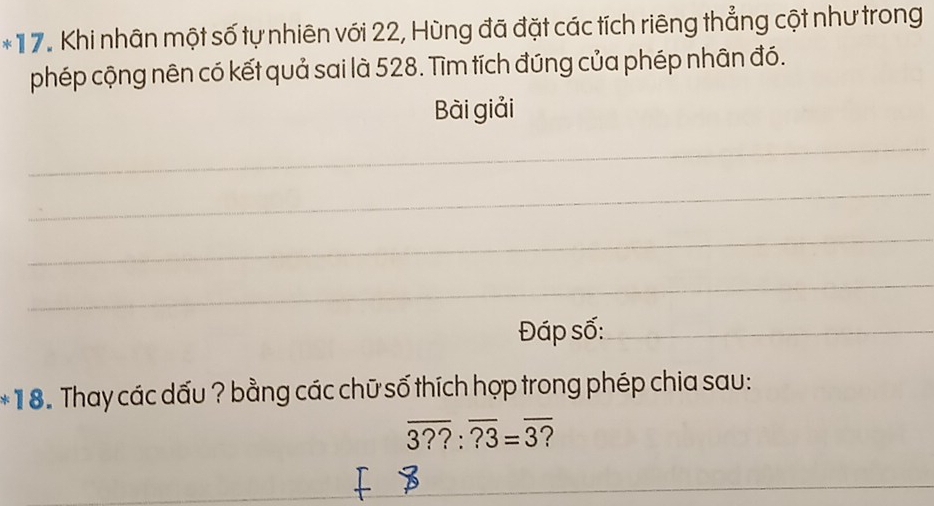 *17. Khi nhân một số tự nhiên với 22, Hùng đã đặt các tích riêng thẳng cột như trong
phép cộng nên có kết quả sai là 528. Tìm tích đúng của phép nhân đó.
Bài giải
Đáp số:
*18. Thay các dấu ? bằng các chữ số thích hợp trong phép chia sau:
3?? : ?3 = 3?